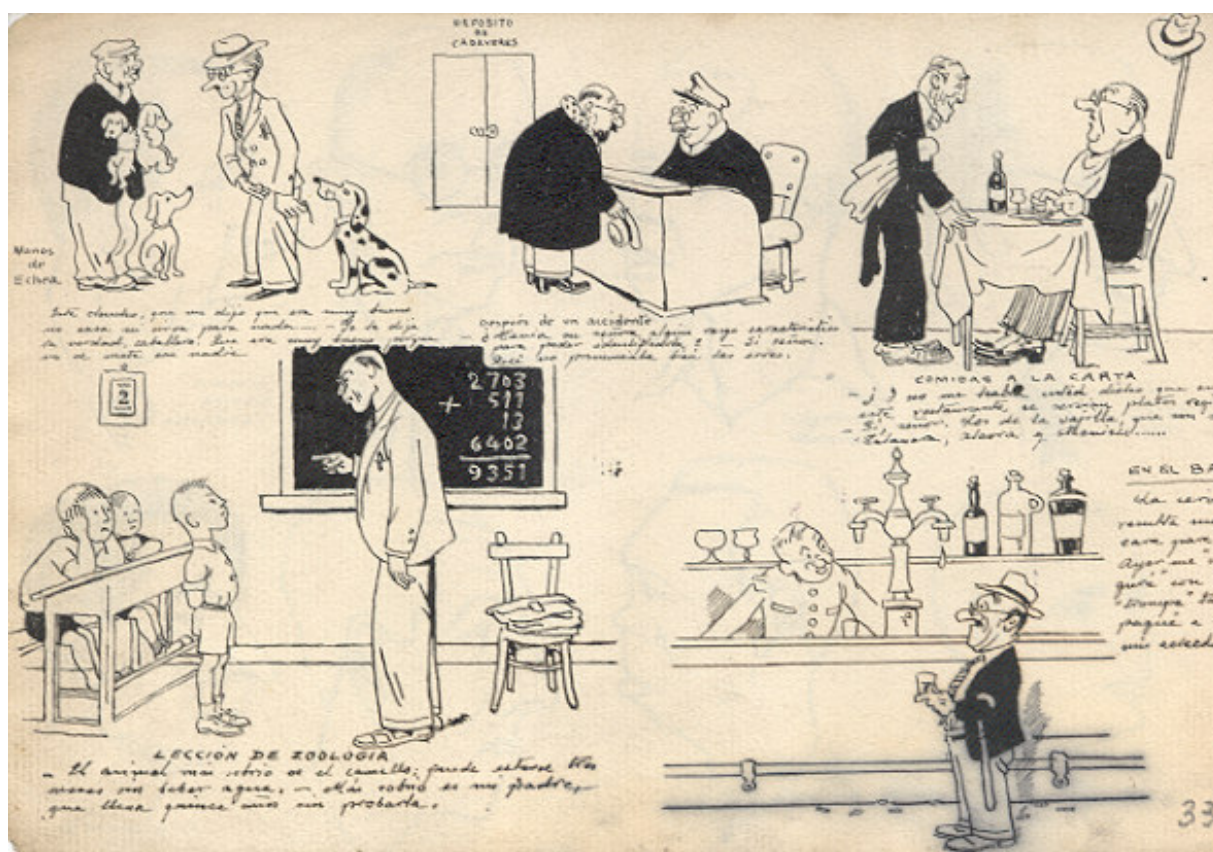 DEPOSITO
DE
CADAVERES
Manos
de
Echea
Este chucho, que me dijo que era muy bueno
no caza ni sirve para nada... — Yo le dije
la verdad, caballero. Que era muy bueno porque
no se mete con nadie
Después de un accidente
— ¿Tenía su señora algún rasgo característico
para poder identificarla? — Sí señor.
Que pronunciaba bien las erres.
COMIDAS A LA CARTA
— ¿Y no me había usted dicho que en
este restaurante, se servían platos
— Sí señor, los de la vajilla, que son
Talavera, alcora y
2
2703
+ 511
13
6402
9351
LECCIÓN DE ZOOLOGIA
— El animal más sobrio es el camello; puede estarse tres
meses sin beber agua. — Más sobrio es mi padre,
que lleva quince años sin probarla.
EN EL BA
La cerv
resulta
cara para
Ayer me
qué con
"trompa"
pagué a
mis acreed
33